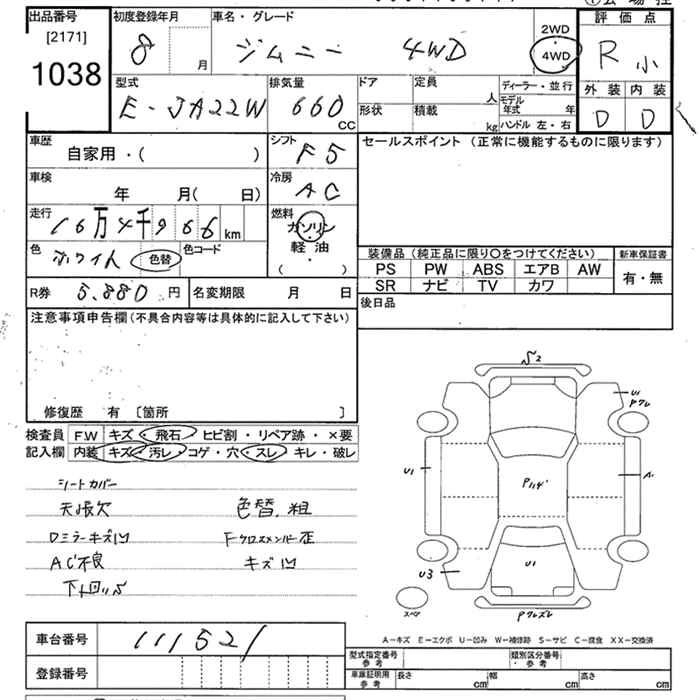 出品番号 初度登録年月 車名・グレード 2WD 評価点
[2171] 8 月 ジムニー 4WD 4WD R 小
1038 外装 内装
型式 排気量 ドア 定員 人 ディーラー・並行 D D
E-JA22W 660 CC 形状 積載 kg モデル年式 年
ハンドル 左・右
車歴 シフト セールスポイント (正常に機能するものに限ります)
自家用・( ) F5
車検 冷房
年 月( 日) AC
走行 燃料
16万4千966 km ガソリン
色 色コード 軽油
ホワイト 色替 ( )
装備品 (純正品に限り〇をつけてください) 新車保証書
PS PW ABS エアB AW 有・無
SR ナビ TV カワ
R券 5,880 円 名変期限 月 日 後日品
注意事項申告欄 (不具合内容等は具体的に記入して下さい)
修復歴 有 〔箇所 〕
検査員 F.W キズ・飛石・ヒビ割・リペア跡・×要
記入欄 内装 キズ・汚レ・コゲ・穴・スレ・キレ・破レ
シートカバー
天張欠 色替.粗
Dミラーキズ凹 Fクロスメンバー歪
AC不良 キズ凹
下回りS
S2
U1
Pクレ
U1
P114
A1
U3
U1
スペア
Pクレズレ
A-キズ E-エクボ U-凹み W-補修跡 S-サビ C-腐食 XX-交換済
車台番号 111521
登録番号
型式指定番号 参考 類別区分番号・参考
車庫証明用 参考 長さ cm 幅 cm 高さ cm